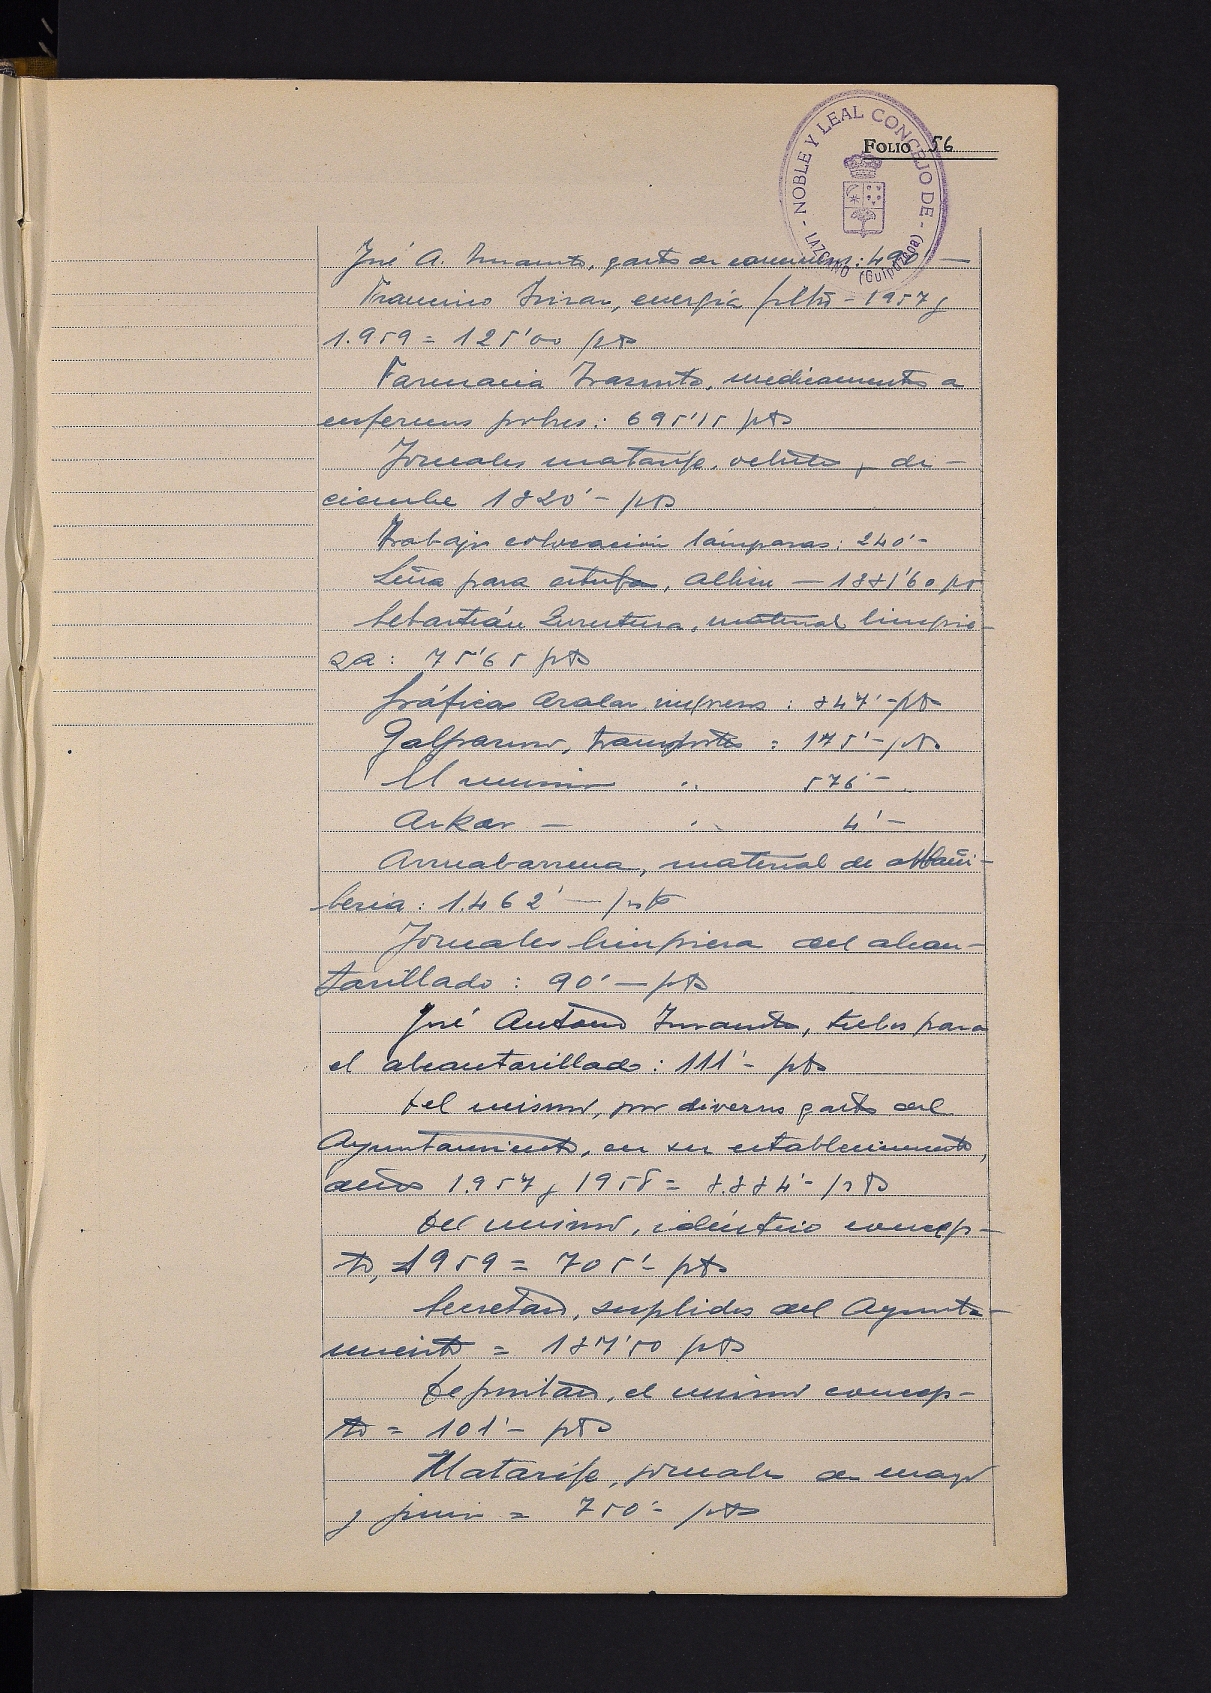 NOBLE Y LEAL CONCEJO DE
LAZCANO (Guipúzcoa)
FOLIO 56
José A. gasto de
energía 1957 y
1.959 = 125'00 pts
Farmacia medicamentos a
enfermos pobres: 695'15 pts
Jornales matarife, octubre y di-
ciembre 1820'- pts
Trabajo colocación lámparas: 240'-
Leña para estufa,
Sebastián material limpie-
za: 75'65 pts
Gráficas Aralar, impresos : 847'- pts
Galparsoro, transportes = 175'- pts
El mismo " 576'-
Arkar - " 4'-
Arruabarrena, material de albañi-
lería: 1.462'- pts
Jornales limpieza del alcan-
tarillado : 90'- pts
José Antonio tubos para
el alcantarillado : 111'- pts
Del mismo, por diversos gastos del
Ayuntamiento, en su establecimiento,
años 1.957 y 1958 = 8.884'- pts
Del mismo, idéntico concep-
to, 1959 = 705'- pts
Secretario, suplidos del Ayunta-
miento = 187'50 pts
Depositario, el mismo concep-
to = 101'- pts
Matarife, jornales de mayo
y junio = 750'- pts